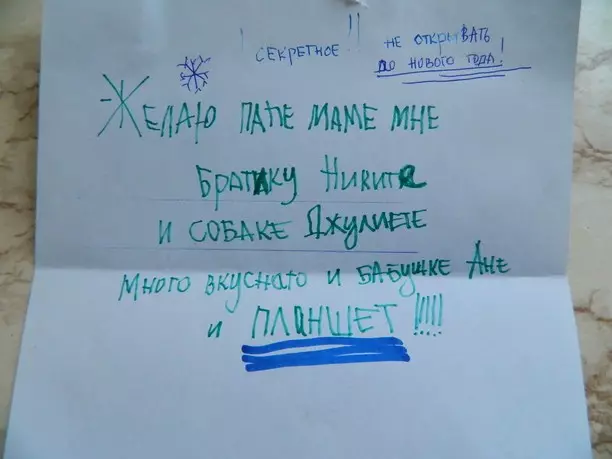 ! СЕКРЕТНОЕ!! НЕ ОТКРЫВАТЬ
ДО НОВОГО ГОДА!
ЖЕЛАЮ ПАПЕ МАМЕ МНЕ
БРАТИКУ НИКИТЕ
И СОБАКЕ ДЖУЛИЕТЕ
МНОГО ВКУСНАГО И БАБУШКЕ АНЕ
И ПЛАНШЕТ!!!!!